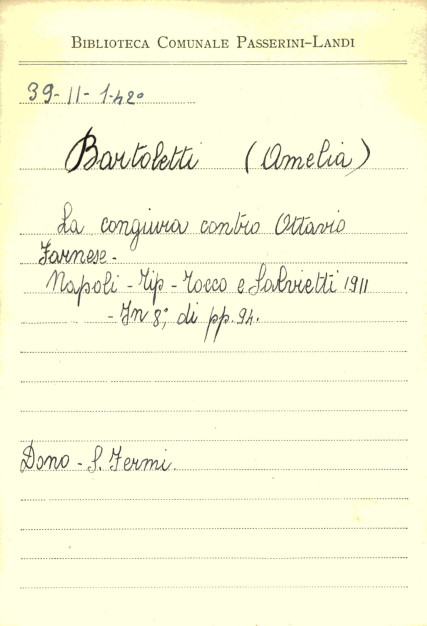 BIBLIOTECA COMUNALE PASSERINI-LANDI
39-II-1-42º
Bartoletti (Amelia)
La congiura contro Ottavio
Farnese-
Napoli - Tip - Tocco e Salvietti 1911
- In 8º, di pp. 94.
Dono - S. Fermi.